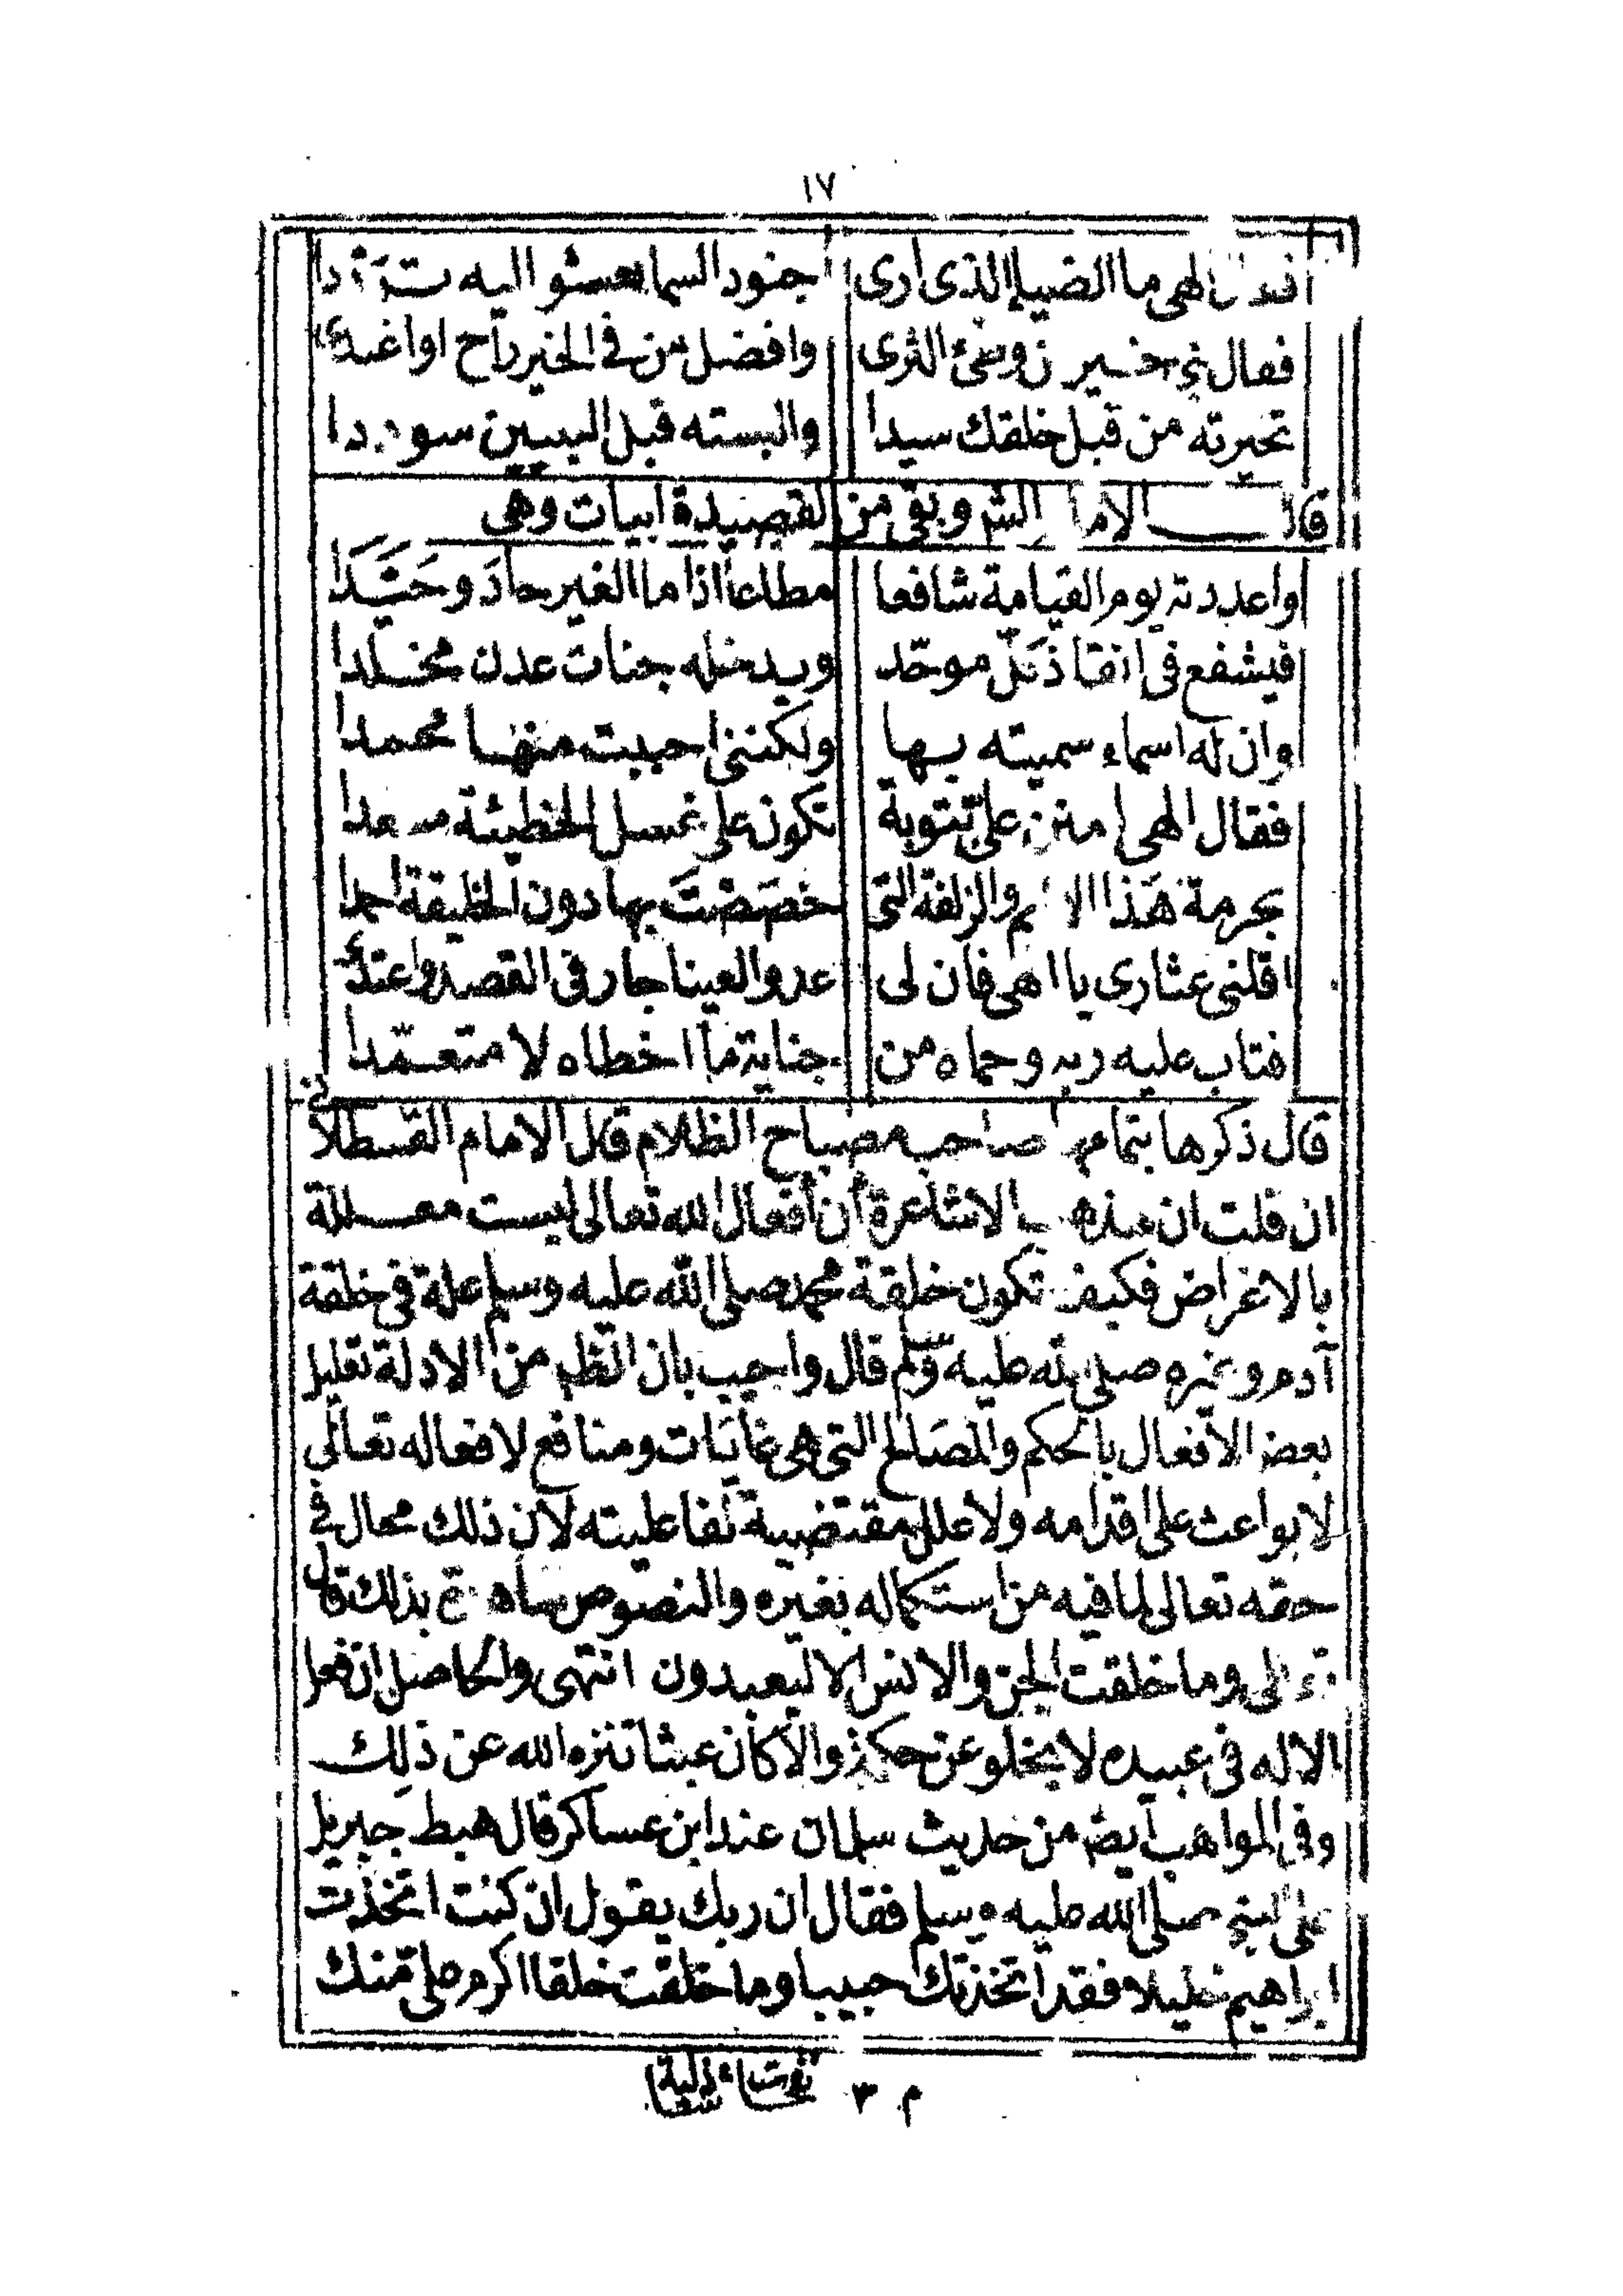 ١٧
الهى ما الضياء الذى ارى جنود السما تعشو اليه
فقال نبى خير من وطئ الثرى وافضل من فى الخير راح او اغتدى
تخيرته من قبل خلقك سيدا والبسته قبل النبيين سوددا
قال الامام الشر وبقى من القصيدة ابيات وهى
واعددته يوم القيامة شافعا مطاعا اذا ما الغير حادَ وحَيَّدَا
فيشفع فى انقاذ كل موحّد ويدخله جنات عدن مخلدا
وان له اسماء سميته بها ولكننى احببت منها محمدا
فقال الهى امنن على بتوبة تكون على غسل الخطيئة مسعدا
بحرمة هَذا الاسم والزلفة التى خصَصْتَ بها دون الخليقة احمدا
اقلنى عثارى يا الهى فان لى عدوا لعينا جار فى القصد واعتدى
فتاب عليه ربه وحماه من جناية ما اخطاه لا متعمّدا
قال ذكرها بتمامها صاحب مصباح الظلام قال الامام القسطلانى
ان قلت ان مذهب الاشاعرة أن أفعال الله تعالى ليست معللة
بالاغراض فكيف تكون خلقة محمد صلى الله عليه وسلم علة فى خلقة
آدم وغيره صلى الله عليه وسلم قال واجيب بان الظ من الادلة تعليل
بعض الأفعال بالحكم والمصَالح التى هى غايَات ومنافع لافعاله تعالى
لا بواعث على اقدامه ولا علل مقتضية لفاعليته لان ذلك محال فى
حقه تعالى لما فيه من استكماله بغيره والنصوص شاهدة بذلك قال
تعالى وما خلقت الجن والانس الا ليعبدون انتهى والحاصل ان فعل
الاله فى عبيده لا يخلو عن حكمة والا كان عبثا تنزه الله عن ذلك
وفى المواهب ايضا من حديث سلمان عند ابن عساكر قال هبط جبريل
على النبى صلى الله عليه وسلم فقال ان ربك يقول ان كنت اتخذت
ابراهيم خليلا فقد اتخذتك حبيبا وما خلقت خلقا اكرم على منك
م ٣